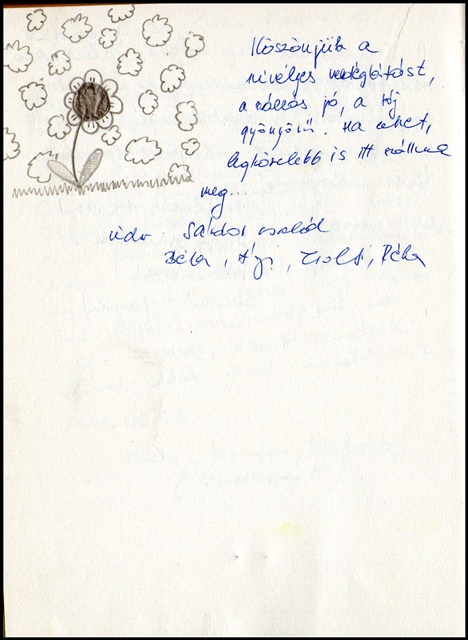 Köszönjük a
szívélyes vendéglátást,
a szállás jó, a táj
gyönyörű. Ha lehet,
legközelebb is itt szállunk
meg...
üdv Sándor család
Béla, Ági, Zsolti, Réka